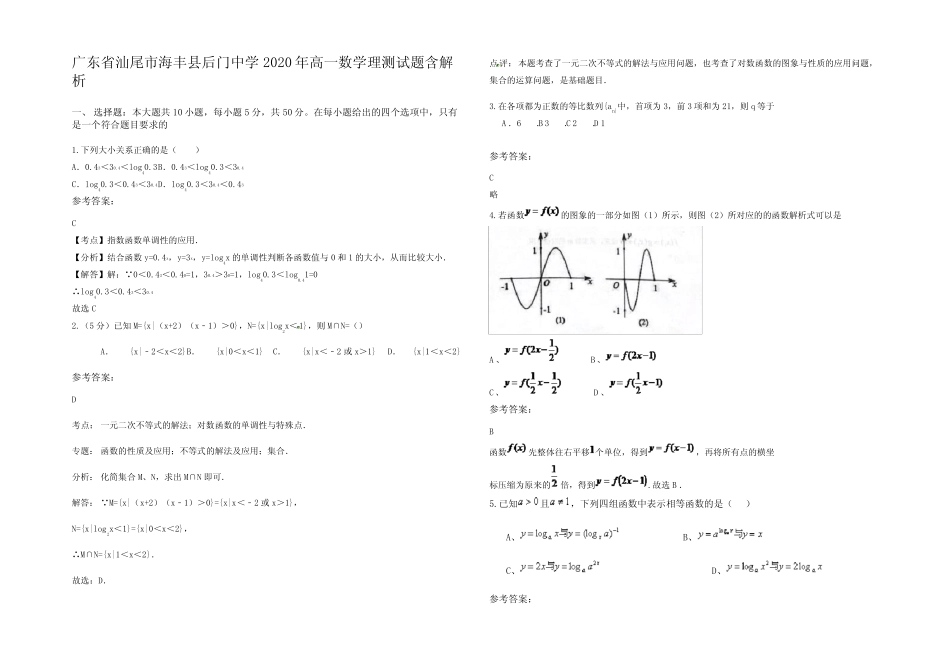 广东省汕尾市海丰县后门中学 2020 年高一数学理测试题含解
析
一、 选择题：本大题共 10 小题，每小题 5 分，共 50 分。在每小题给出的四个选项中，只有
是一个符合题目要求的
1.下列大小关系正确的是（　　）
A．0.4³＜3^0.4＜log₄0.3B．0.4³＜log₄0.3＜3^0.4
C．log₄0.3＜0.4³＜3^0.4D．log₄0.3＜3^0.4＜0.4³
参考答案：
C
【考点】指数函数单调性的应用．
【分析】结合函数 y=0.4ˣ，y=3ˣ，y=log₄x 的单调性判断各函数值与 0 和 1 的大小，从而比较大小．
【解答】解：∵0＜0.4³＜0.4⁰=1，3^0.4＞3⁰=1，log₄0.3＜log₀.₄1=0
∴log₄0.3＜0.4³＜3^0.4
故选 C
2.（5 分）已知 M={x|（x+2）（x﹣1）＞0}，N={x|log₂x＜1}，则 M∩N=（）
A． {x|﹣2＜x＜2} B． {x|0＜x＜1} C． {x|x＜﹣2 或 x＞1} D． {x|1＜x＜2}
参考答案：
D
考点： 一元二次不等式的解法；对数函数的单调性与特殊点．
专题： 函数的性质及应用；不等式的解法及应用；集合．
分析： 化简集合 M、N，求出 M∩N 即可．
解答： ∵M={x|（x+2）（x﹣1）＞0}={x|x＜﹣2 或 x＞1}，
N={x|log₂x＜1}={x|0＜x＜2}，
∴M∩N={x|1＜x＜2}．
故选：D．
点评： 本题考查了一元二次不等式的解法与应用问题，也考查了对数函数的图象与性质的应用问题，
集合的运算问题，是基础题目．
3.在各项都为正数的等比数列{aₙ}中，首项为 3，前 3 项和为 21，则 q 等于
A．6 .B 3 .C 2 .D 1
参考答案：
C
略
4.若函数y = f(x)的图象的一部分如图（1）所示，则图（2）所对应的的函数解析式可以是
y y
1 1
-1 O 1 x O 1 x
-1 -1
(1) (2)
A、y = f(2x − 1/2) B、y = f(2x − 1)
C、y = f(1/2 x − 1/2) D、y = f(1/2 x − 1)
参考答案：
B
函数f(x)先整体往右平移1个单位，得到y = f(x−1)，再将所有点的横坐
标压缩为原来的1/2倍，得到y = f(2x−1).故选 B．
5.已知a > 0且a ≠ 1，下列四组函数中表示相等函数的是（　）
A、y = logₐ x与y = (logₓ a)⁻¹ B、y = a^(logₐ x)与y = x
C、y = 2x与y = logₐ a^(2x) D、y = logₐ x²与y = 2 logₐ x
参考答案：